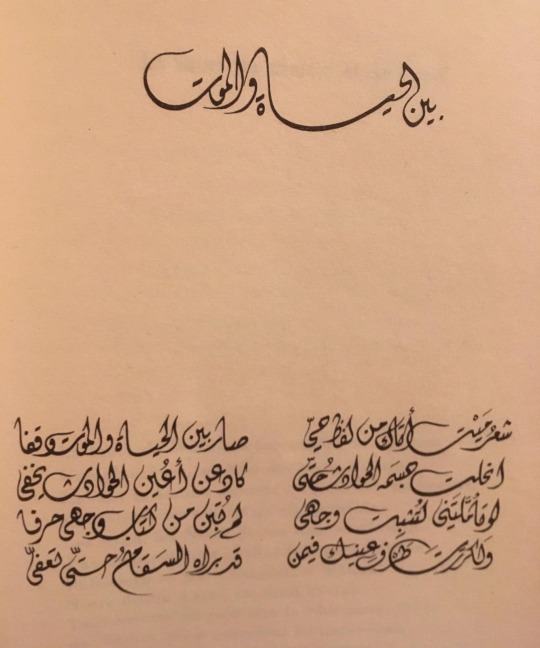 بين الحياة والموت
شعرُ مَيْتٍ أتاك من لفظ حيّ صار بين الحياة والموت وقفا
انحلت جسمه الحوادث حتّى كاد عن أعين الحوادث يخفى
لو تأمّلتني لتثبت وجهي لم تُبِن من كتاب وجهي حرفا
ولكررت طرف عينيك فيمن قد براه السقام حتّى تعفّى